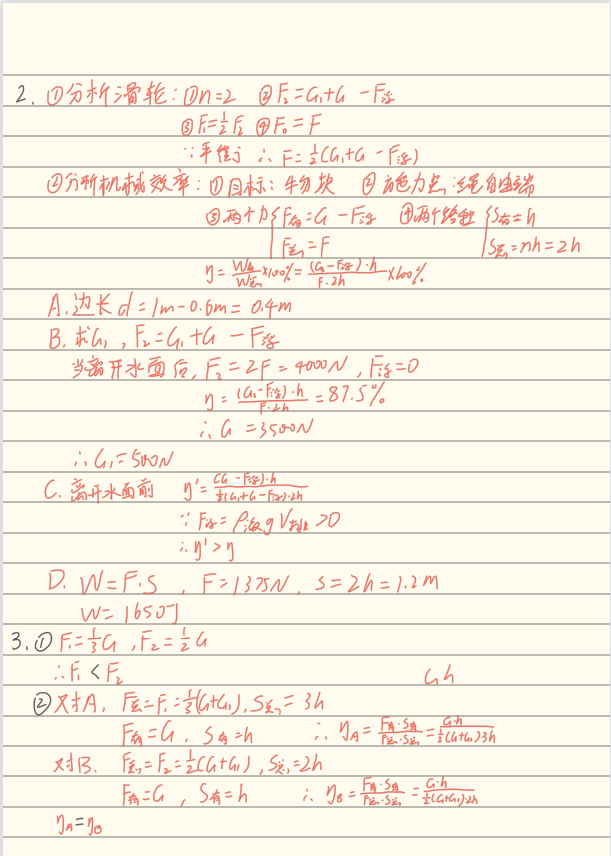 2. ①分析滑轮:①n=2 ②F₂=G₁+G-F浮
③F₁=½F₂ ④F₀=F
∵平衡 ∴F=½(G₁+G-F浮)
②分析机械效率:①目标:物块 ②动力点:绳自由端
③两个力{F有=G-F浮 ④两个路程{S有=h
F总=F S总=nh=2h
η=W有/W总×100%=(G-F浮)·h/F·2h×100%
A.边长d=1m-0.6m=0.4m
B.求G₁,F₂=G₁+G-F浮
当离开水面后,F₂=2F=4000N,F浮=0
η=(G-F浮)·h/F·2h=87.5%
∴G=3500N
∴G₁=500N
C.离开水面前 η'=(G-F浮)·h/½(G₁+G-F浮)·2h
∵F浮=ρ液gV排>0
∴η'>η
D. W=F·S,F=1375N,S=2h=1.2m
W=1650J
3.①F₁=⅓G,F₂=½G
∴F₁<F₂ Gh
②对A,F总=F₁=⅓(G+G₁),S总=3h
F有=G,S有=h ∴ηA=F有·S有/F总·S总=G·h/⅓(G+G₁)·3h
对B.F总=F₂=½(G+G₁),S总=2h
F有=G,S有=h ∴ηB=F有·S有/F总·S总=G·h/½(G+G₁)·2h
ηA=ηB